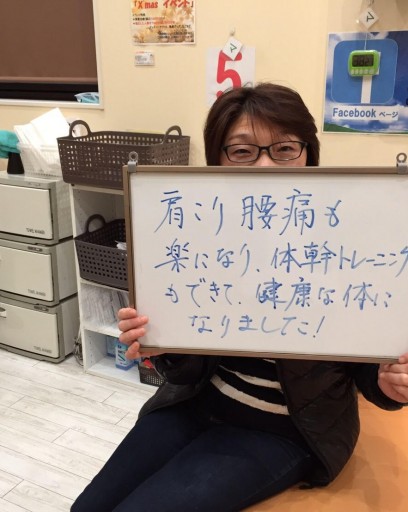 「X'mas イベント」
5
Facebook ページ
肩こり腰痛も
楽になり、体幹トレーニング
もできて、健康な体に
なりましたこ!